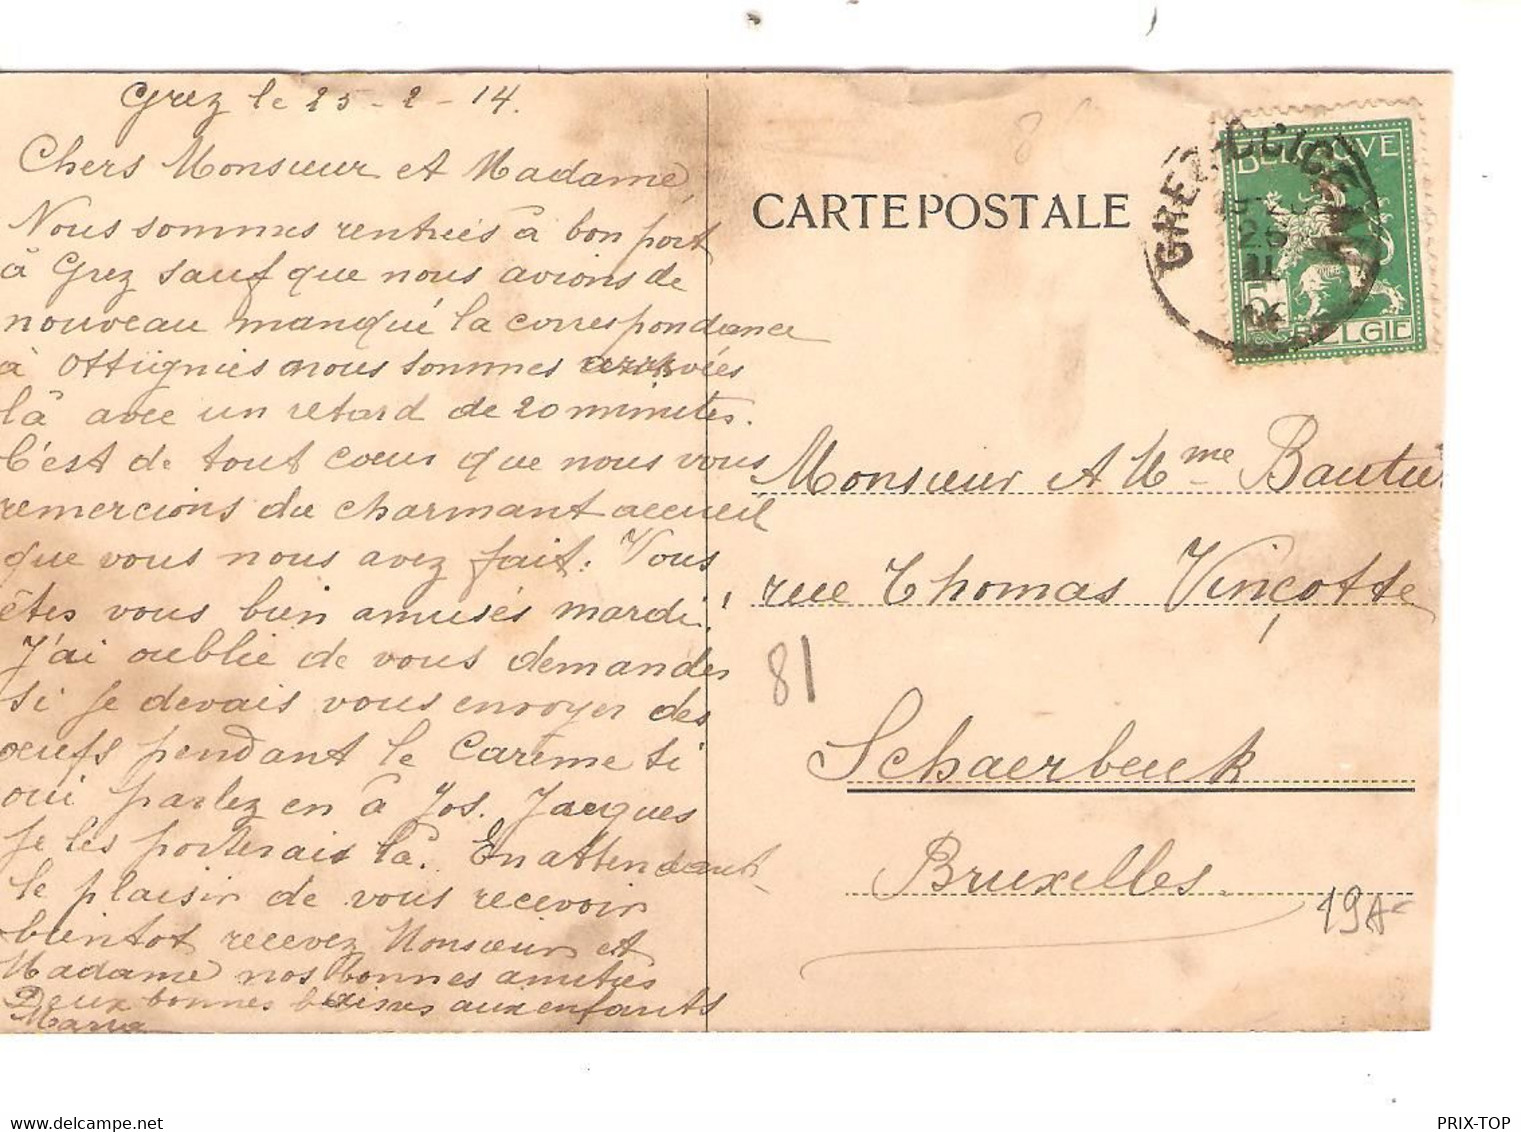 Grez le 25-2-14.
Chers Monsieur et Madame,
Nous sommes rentrées à bon port
à Grez sauf que nous avions de
nouveau manqué la correspondance
à Ottignies nous sommes arrivées
là avec un retard de 20 minutes.
C'est de tout coeur que nous vous
remercions du charmant accueil
que vous nous avez fait. Vous
êtes vous bien amusés mardi!
J'ai oublié de vous demander
si je devais vous envoyer des
oeufs pendant le Carême si
oui parlez en à Jos. Jacques
je les porterais là. En attendant
le plaisir de vous recevoir
bientot recevez Monsieur et
Madame nos bonnes amitiés
Deux bonnes baises aux enfants
Maria
CARTE POSTALE
BELGIQUE
BELGIE
5
Monsieur et Mme
rue Thomas Vinçotte
81
Schaerbeek
Bruxelles.
PRIX-TOP